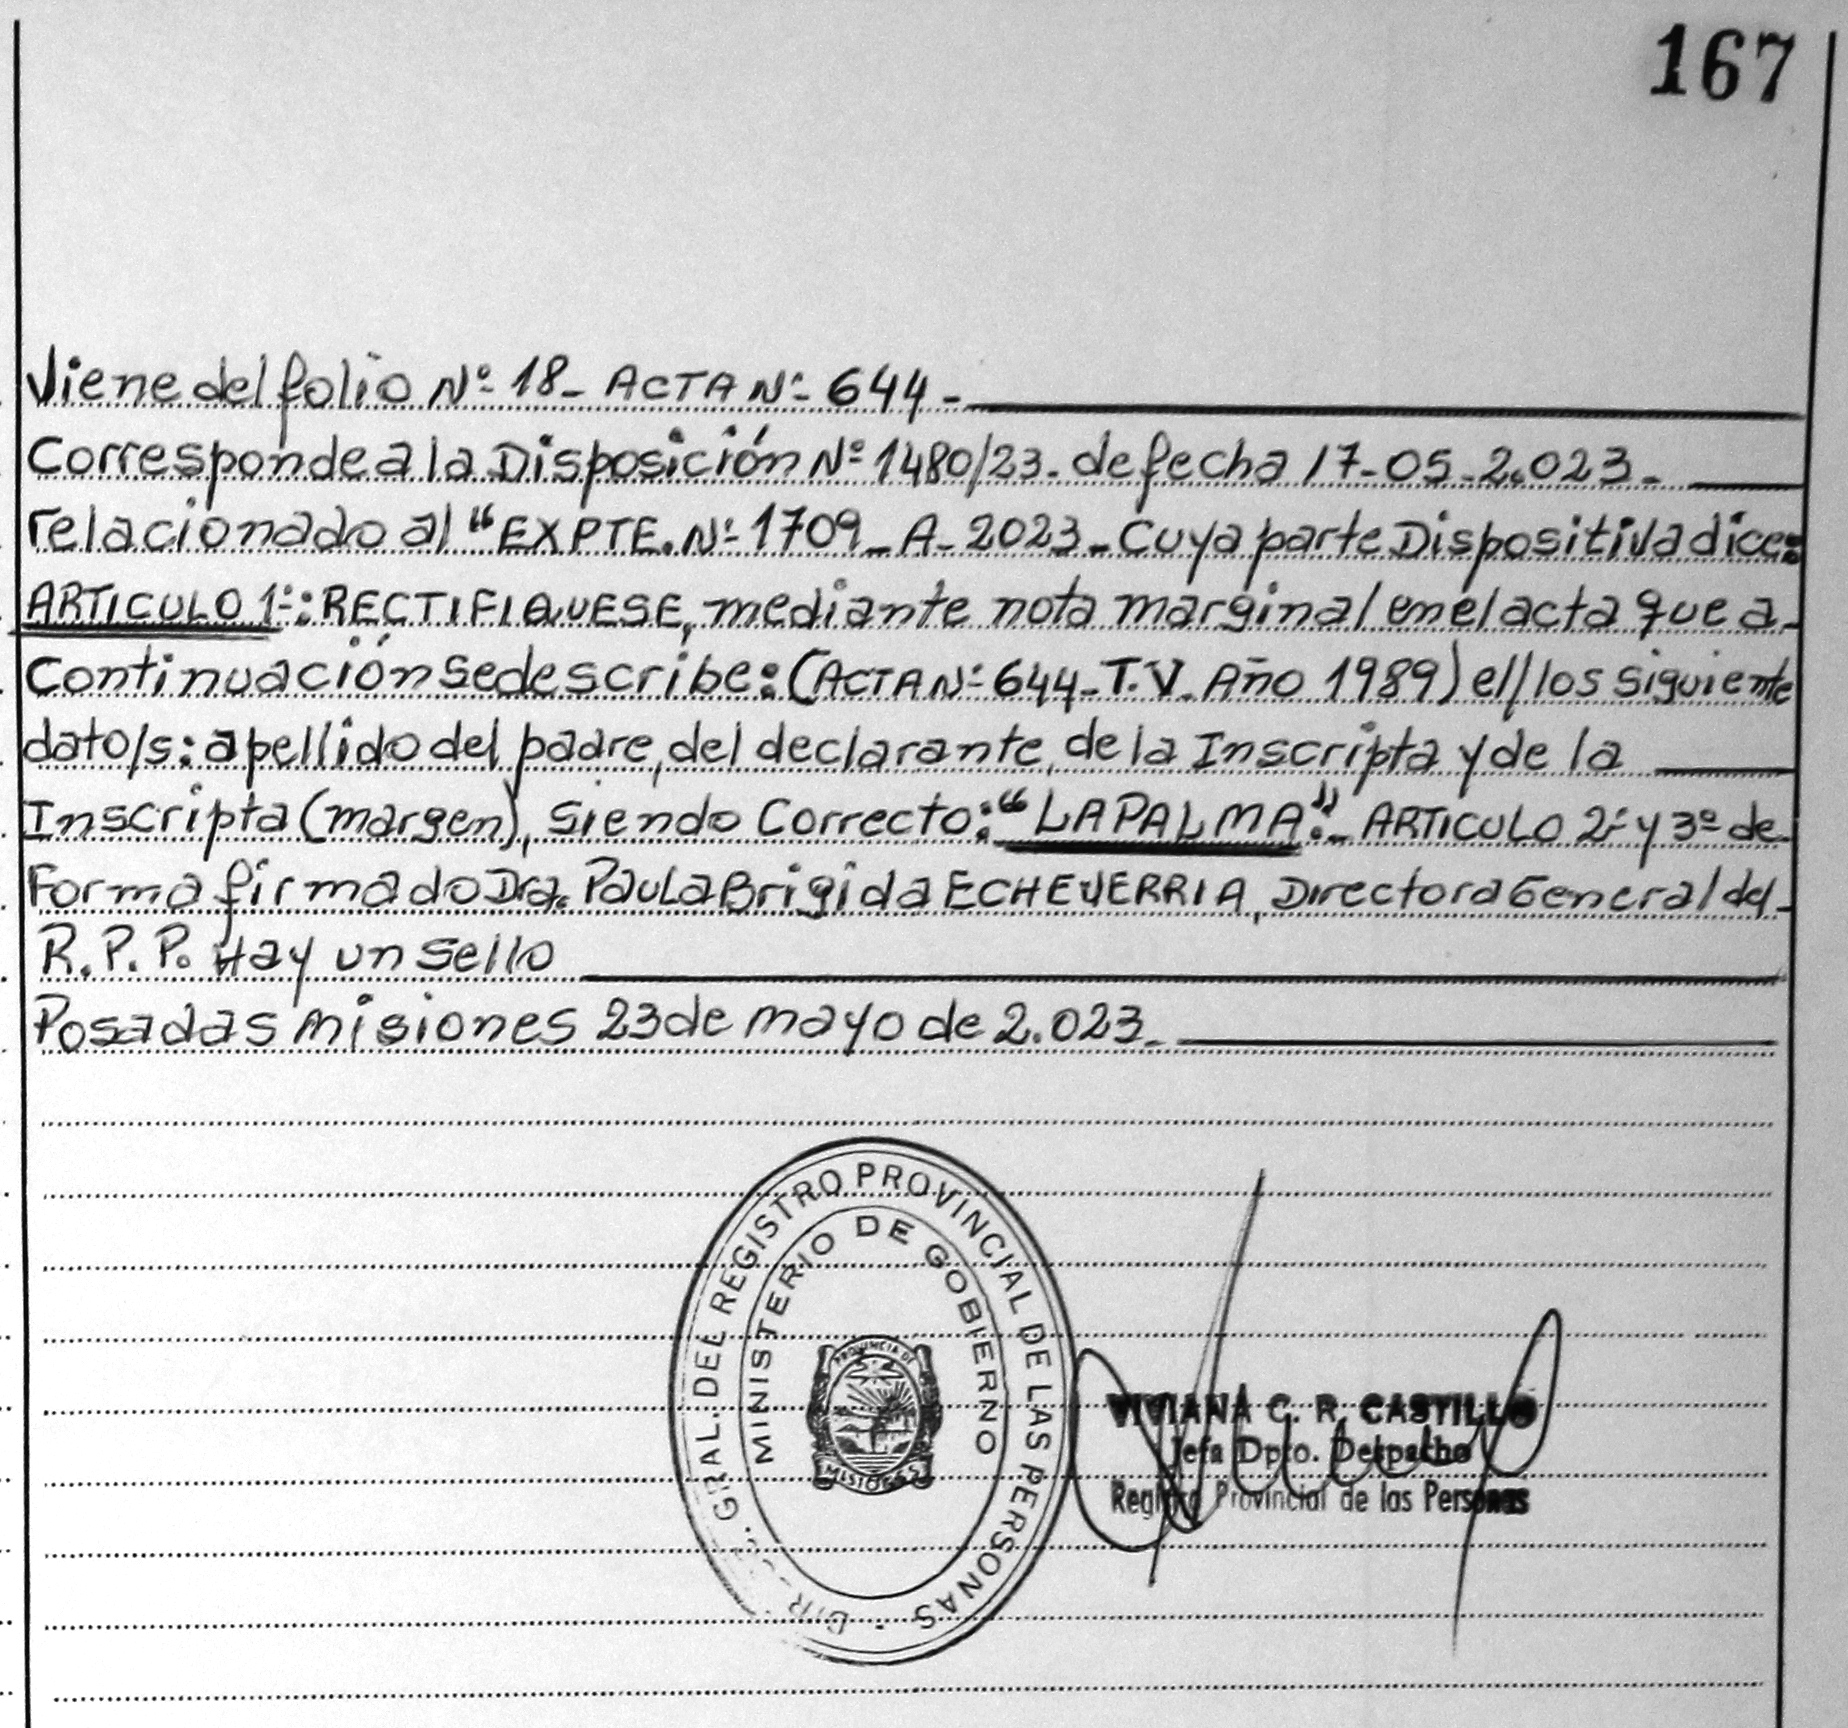 167
Viene del folio Nº 18_ ACTA Nº 644_
Corresponde a la Disposición Nº 1480/23. de fecha 17-05-2.023_
relacionado al "EXPTE. Nº 1709_ A_ 2023_ Cuya parte Dispositiva dice:
ARTICULO 1º: RECTIFIQUESE, mediante nota marginal en el acta que a_
Continuación se describe: (ACTA Nº 644_T.V. Año 1989) el/los siguiente
dato/s: apellido del padre, del declarante, de la Inscripta y de la
Inscripta (margen), Siendo Correcto: "LAPALMA"._ ARTICULO 2º y 3º de
Forma firmado Dra. PAULA Brigida ECHEVERRIA, Directora General del_
R.P.P. Hay un sello
Posadas Misiones 23 de mayo de 2.023_
GRAL. DEL REGISTRO PROVINCIAL DE LAS PERSONAS
MINISTERIO DE GOBIERNO
PROVINCIA DE
MISIONES
VIVIANA C. R. CASTILLO
Jefa Dpto. Despacho
Registro Provincial de las Personas